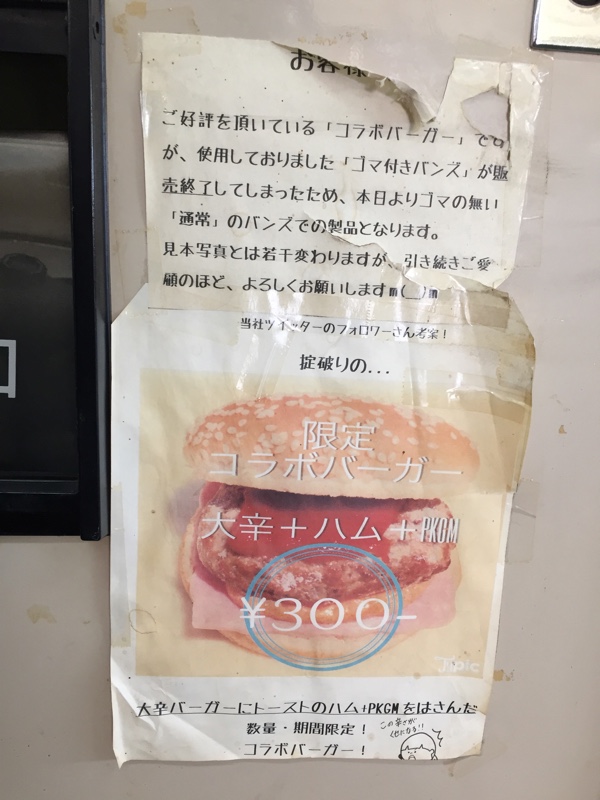 お客様
ご好評を頂いている「コラボバーガー」です
が、使用しておりました「ゴマ付きバンズ」が販
売終了してしまったため、本日よりゴマの無い
「通常」のバンズでの製品となります。
見本写真とは若干変わりますが、引き続きご愛
顧のほど、よろしくお願いしますm(__)m
当社ツイッターのフォロワーさん考案！
掟破りの...
限定
コラボバーガー
大辛＋ハム＋PKGM
¥300-
大辛バーガーにトーストのハム+PKGMをはさんだ
数量・期間限定！
コラボバーガー！
この辛さが
くせになる!!